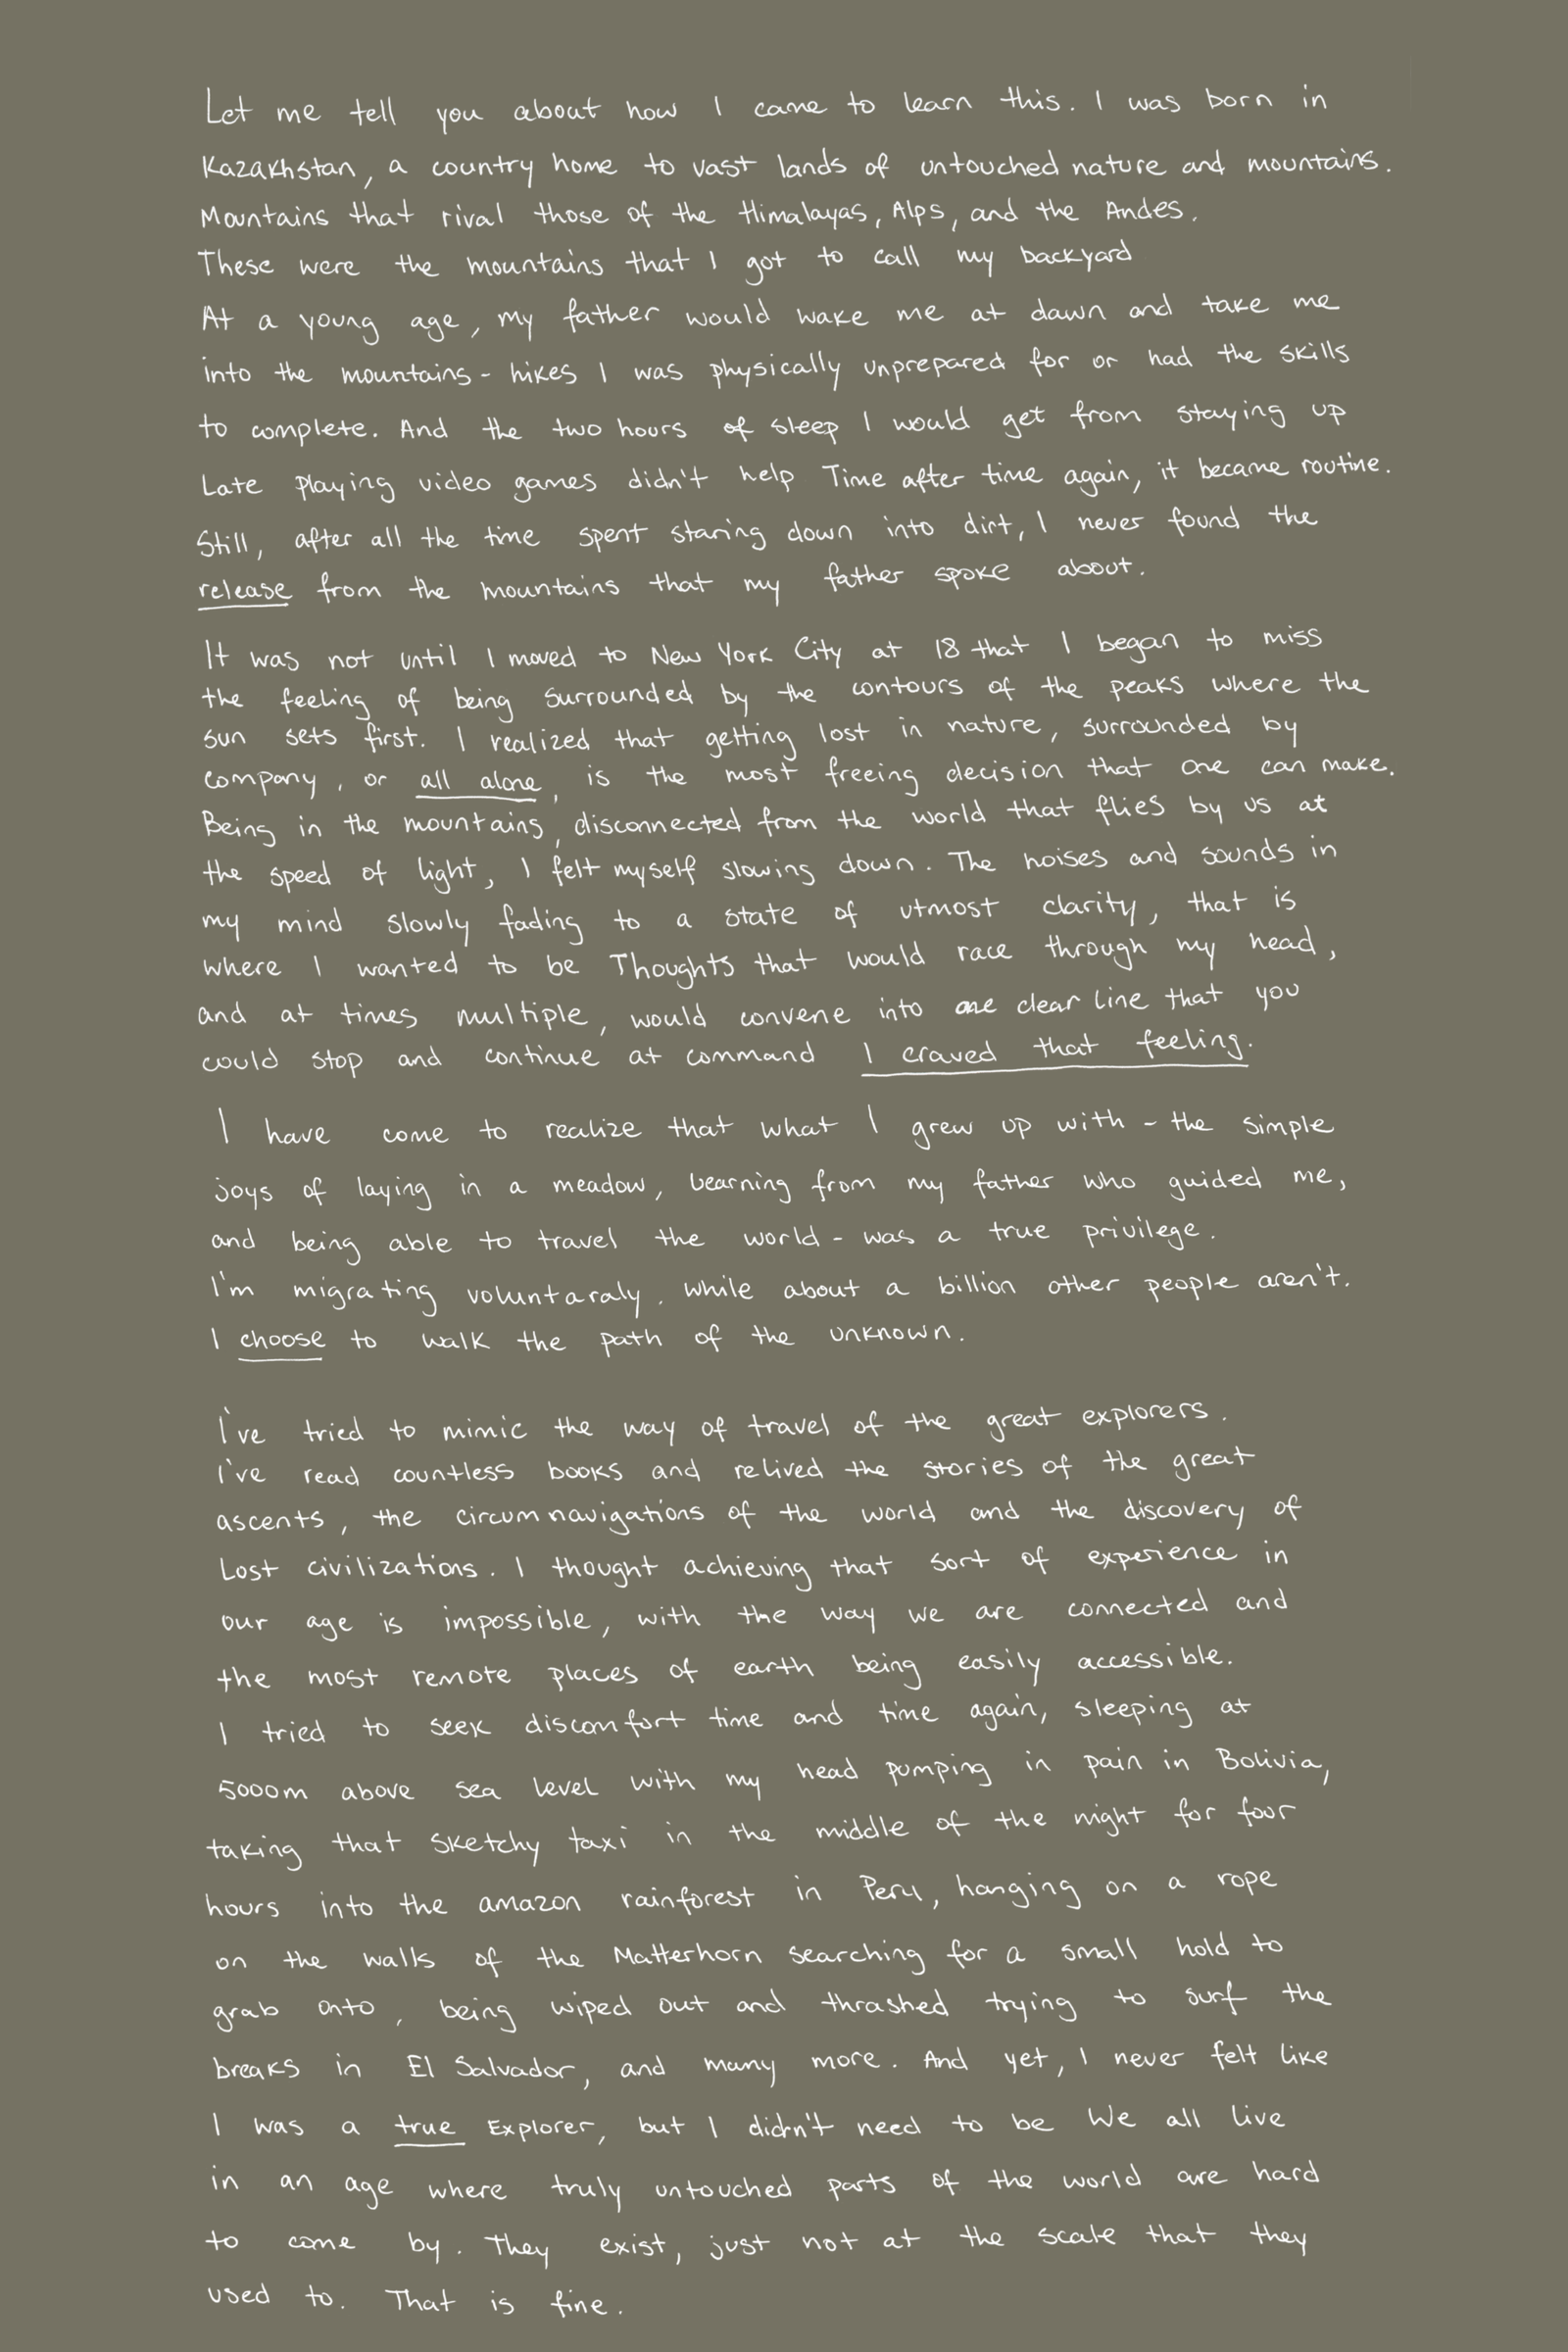 Let me tell you about how I came to learn this. I was born in
Kazakhstan, a country home to vast lands of untouched nature and mountains.
Mountains that rival those of the Himalayas, Alps, and the Andes.
These were the mountains that I got to call my backyard
At a young age, my father would wake me at dawn and take me
into the mountains - hikes I was physically unprepared for or had the skills
to complete. And the two hours of sleep I would get from staying up
Late playing video games didn't help Time after time again, it became routine.
Still, after all the time spent staring down into dirt, I never found the
release from the mountains that my father spoke about.
It was not until I moved to New York City at 18 that I began to miss
the feeling of being surrounded by the contours of the peaks where the
sun sets first. I realized that getting lost in nature, surrounded by
company, or all alone, is the most freeing decision that one can make.
Being in the mountains, disconnected from the world that flies by us at
the speed of light, I felt myself slowing down. The noises and sounds in
my mind slowly fading to a state of utmost clarity, that is
where I wanted to be Thoughts that would race through my head,
and at times multiple, would convene into one clear line that you
could stop and continue at command I craved that feeling.
I have come to realize that what I grew up with - the simple
joys of laying in a meadow, learning from my father who guided me,
and being able to travel the world - was a true privilege.
I'm migrating voluntaraly. while about a billion other people aren't.
I choose to walk the path of the unknown.
I've tried to mimic the way of travel of the great explorers.
I've read countless books and relived the stories of the great
ascents, the circumnavigations of the world and the discovery of
Lost civilizations. I thought achieving that sort of experience in
our age is impossible, with the way we are connected and
the most remote places of earth being easily accessible.
I tried to seek discomfort time and time again, sleeping at
5000m above sea level with my head pumping in pain in Bolivia,
taking that sketchy taxi in the middle of the night for four
hours into the amazon rainforest in Peru, hanging on a rope
on the walls of the Matterhorn searching for a small hold to
grab onto, being wiped out and thrashed trying to surf the
breaks in El Salvador, and many more. And yet, I never felt like
I was a true Explorer, but I didn't need to be We all live
in an age where truly untouched parts of the world are hard
to come by. They exist, just not at the scale that they
used to. That is fine.